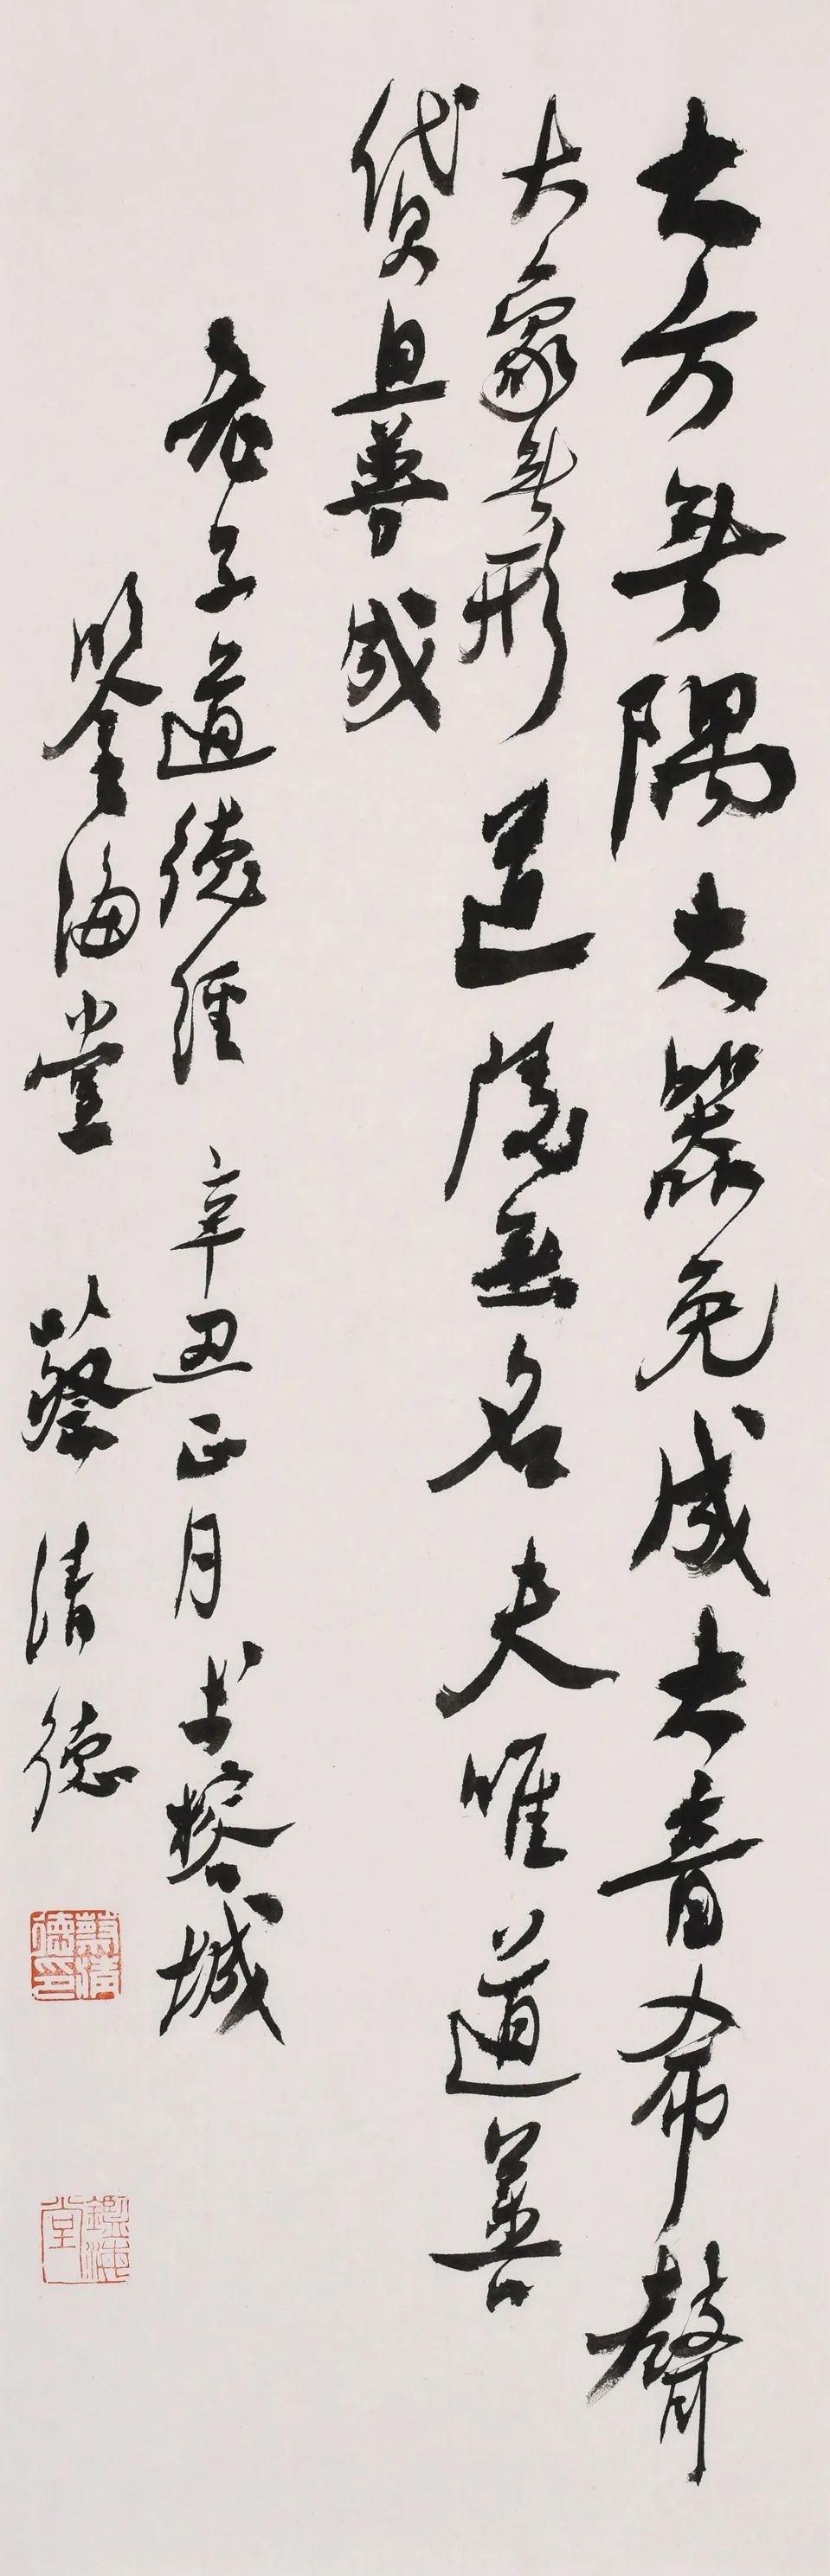 大方無隅大器免成大音希聲
大象無形道隱無名夫唯道善
貸且善成
老子道德經 辛丑正月书榕城
鑒海堂 蔡清德
蔡清德印
鑑海堂